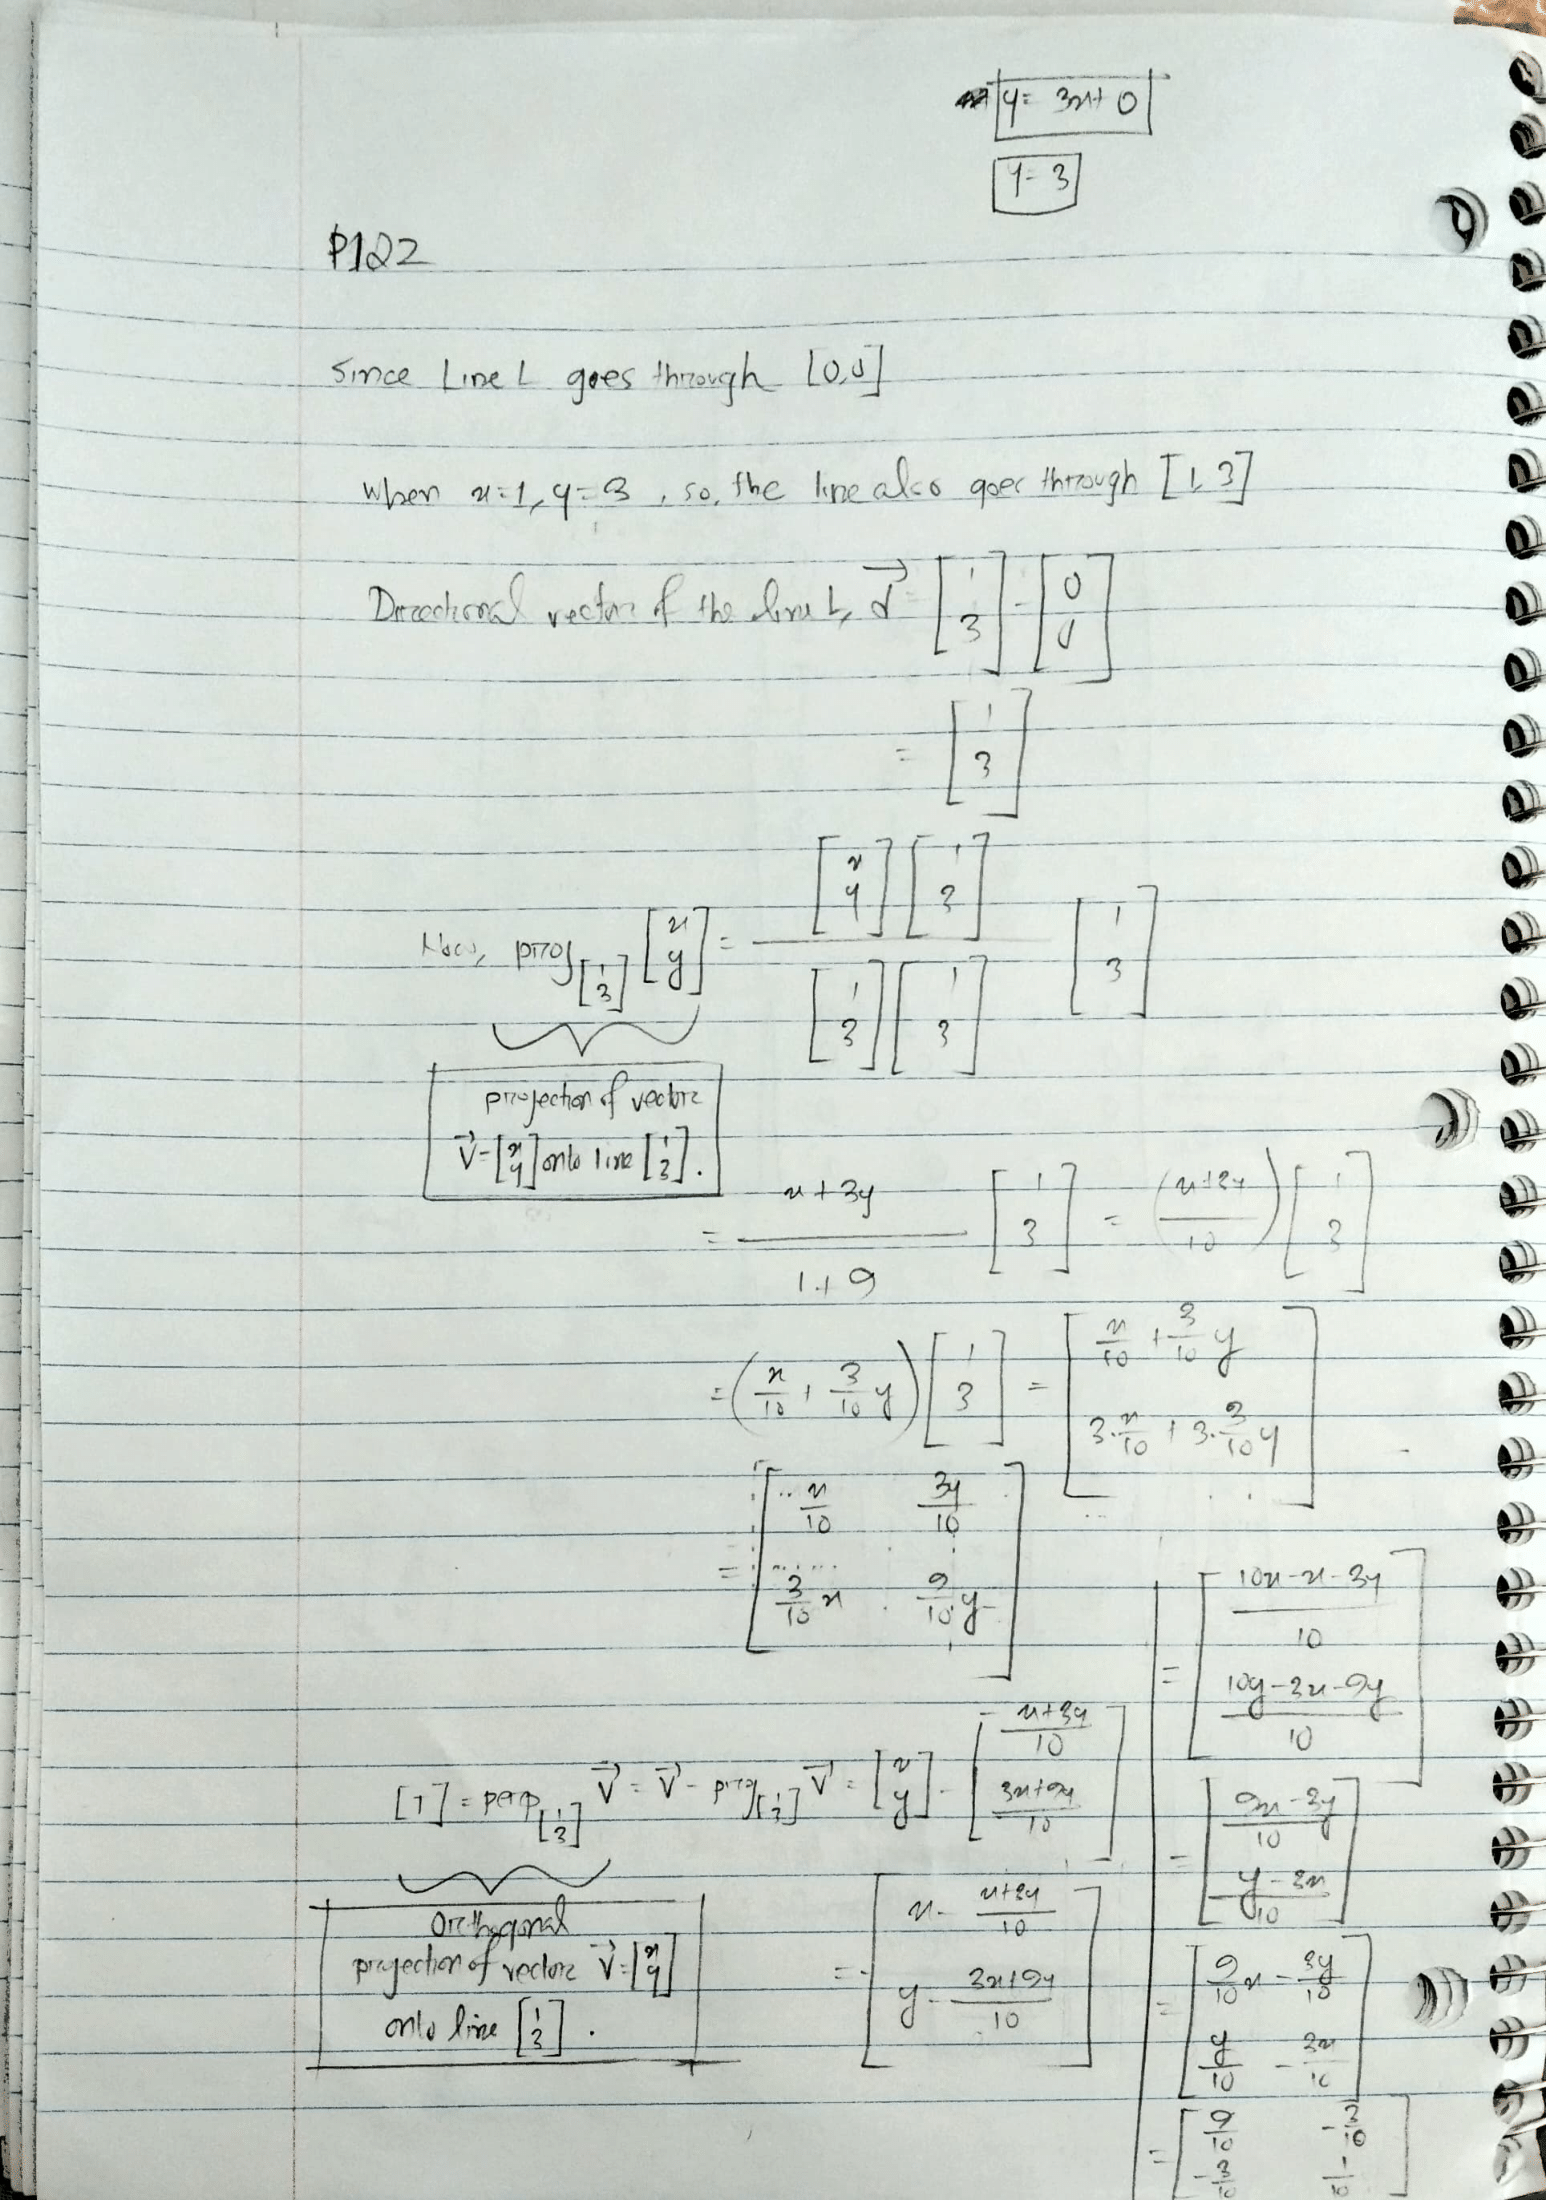 y = 3x + 0
y = 3
P122
Since Line L goes through [0,0]
When x=1, y=3, so, the line also goes through [1,3]
Directional vector of the line L, d⃗ = [1 3] - [0 0]
= [1 3]
Now, proj[1 3] [x y] = [x y][1 3] / [1 3][1 3] [1 3]
projection of vector
v⃗ = [x y] onto line [1 3].
= (x + 3y) / (1 + 9) [1 3] = ((x+3y)/10) [1 3]
= (x/10 + 3/10 y) [1 3] = [x/10 + 3/10 y
3·x/10 + 3·3/10 y]
= [x/10 3y/10
3/10 x 9/10 y]
[T] = perp[1 3] v⃗ = v⃗ - proj[1 3] v⃗ = [x y] - [(x+3y)/10 (3x+9y)/10]
Orthogonal
projection of vector v⃗ = [x y]
onto line [1 3].
= [x - (x+3y)/10
y - (3x+9y)/10]
= [(10x-x-3y)/10
(10y-3x-9y)/10]
= [(9x-3y)/10
(y-3x)/10]
= [9/10 x - 3y/10
y/10 - 3x/10]
= [9/10 -3/10
-3/10 1/10]